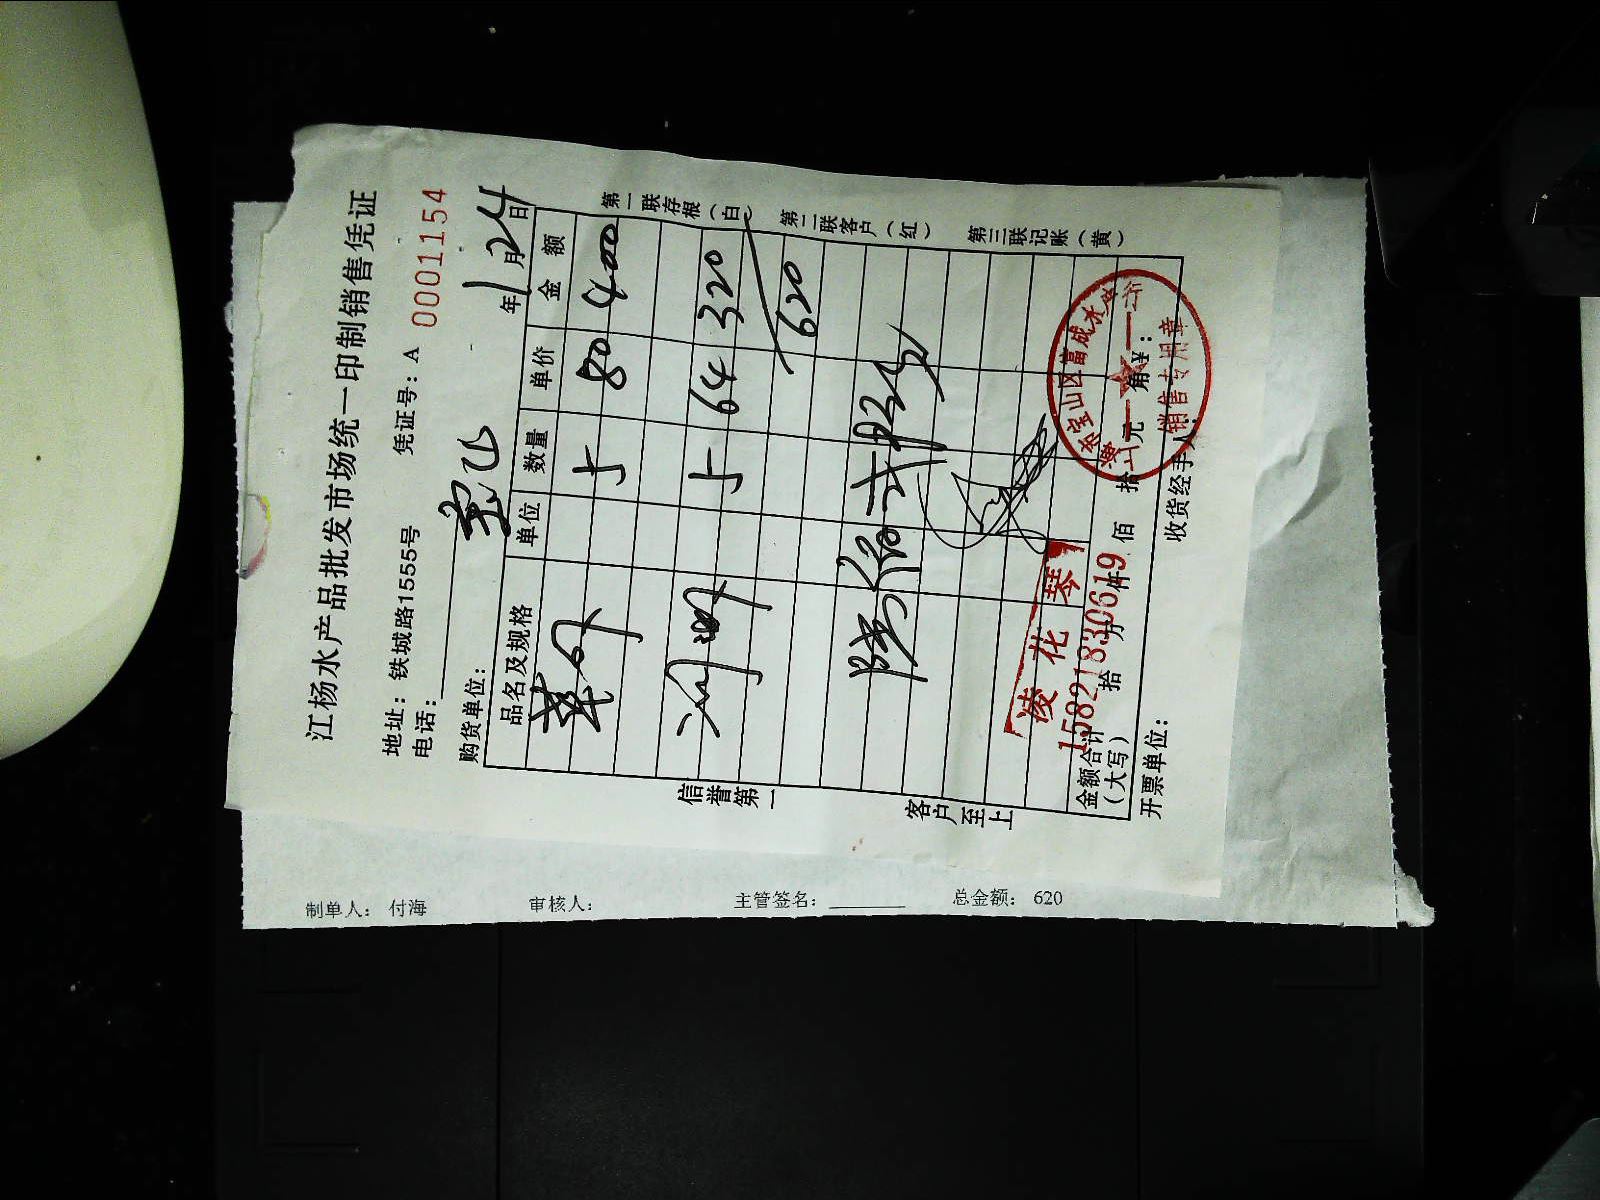 江杨水产品批发市场统一印制销售凭证
地址：铁城路1555号 凭证号：A 0001154
电话：
购货单位： 年1月24日
品名及规格 单位 数量 单价 金额
5 80 400
5 64 320
620
金额合计（大写） 拾 万 仟 佰 拾 元 角 ￥：
开票单位： 收货经手人：
第一联存根（白）
第二联客户（红）
第三联记账（黄）
信誉第一
客户至上
凌花琴
15821830619
宝山区富成水产
销售专用章
制单人： 付海 审核人： 主管签名： 总金额： 620